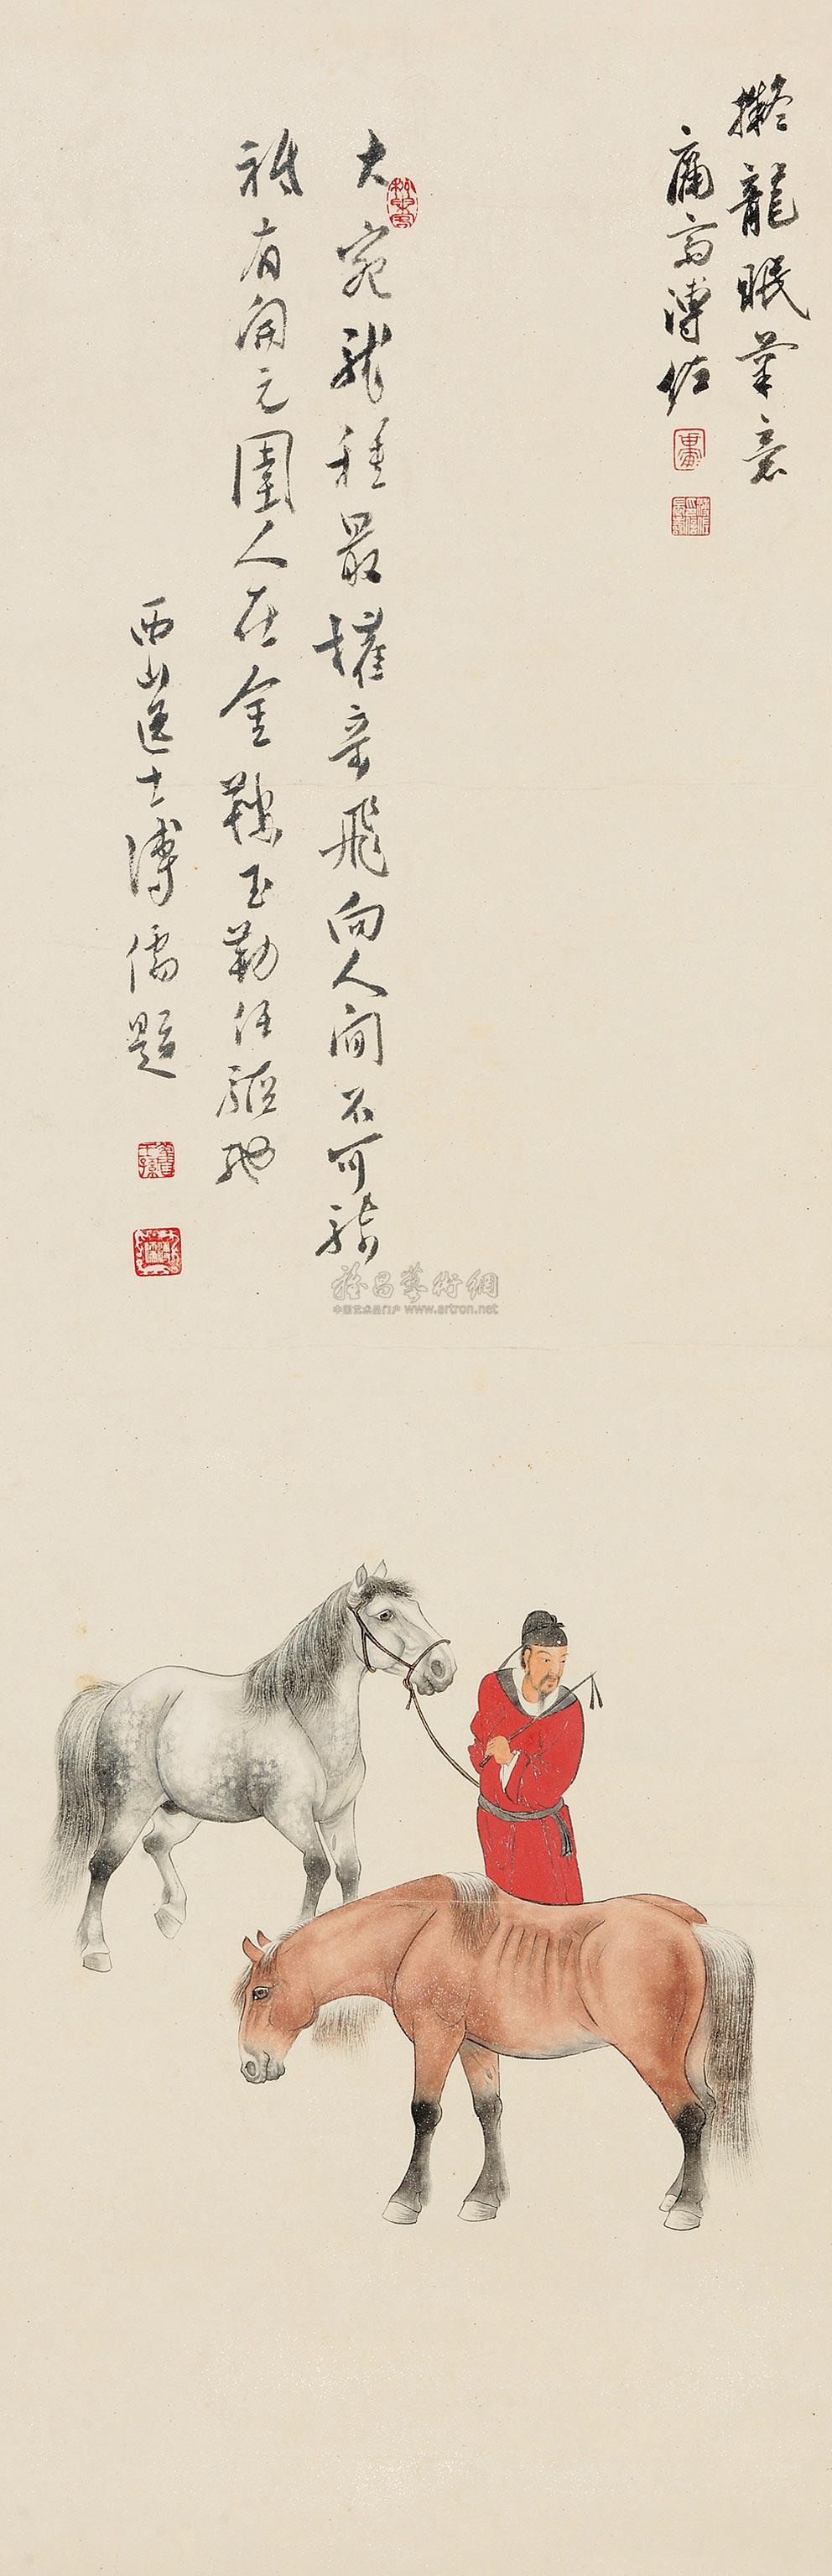 擬龍眠筆意
庸齋溥佐
大宛龍種最權奇飛向人間不可騎
祇有開元圉人在金鞿玉勒任驅馳
西山逸士溥儒題
雅昌藝術網
中国艺术品门户 www.artron.net